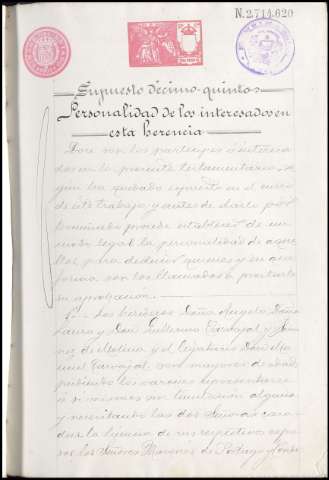 N. 2.714.620
Supuesto décimo-quinto
Personalidad de los interesados en
esta herencia
Doce son los partícipes o interesa
dos en la presente testamentaría, se
gún ha quedado expuesto en el curso
de este trabajo, y antes de darlo por
terminado procede establecer de un
modo legal la personalidad de aque
llos para deducir quienes y en que
forma son los llamados a prestarle
su aprobación.
1º. Los herederos Doña Angela, Doña
Laura y Don Guillermo Carvajal y Jimé
nez de Molina y el legatario Don Ma
nuel Carvajal son mayores de edad,
pudiendo los varones representarse
a si mismos sin limitación alguna
y necesitando las dos Señoras casa
das la licencia de sus respectivos espo
sos los Señores Marqués de Portago y Conde